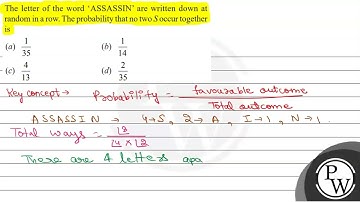 The letter of the word 'ASSASSIN' are written down at
random in a row. The probability that no two S occur together
is
(a) 1/35 (b) 1/14
(c) 4/13 (d) 2/35
Key concept → Probability = favourable outcome / Total outcome
ASSASSIN → 4→S, 2→A, I→1, N→1.
Total ways = ⌊8 / ⌊4 × ⌊2
There are 4 letters apa
PW